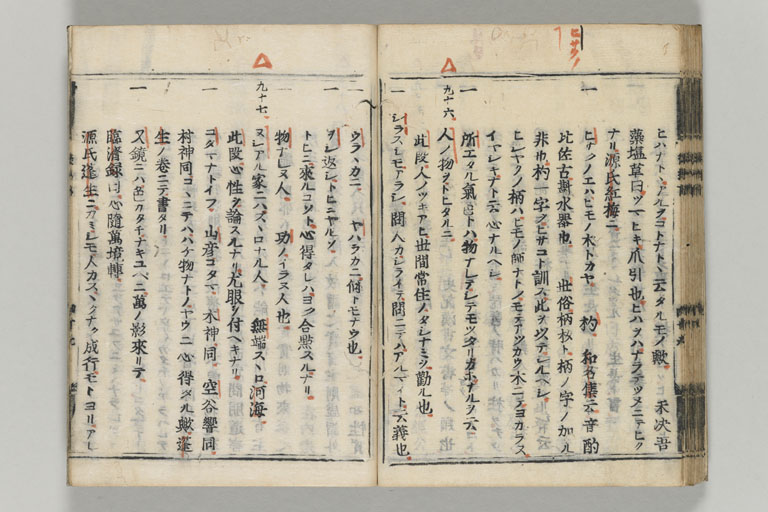 ヒハナト、ナルクコトナト、云タルモノ歟 禾决吾
藻塩草曰ツマヒキ爪引也ヒハヲハナラテツメニテヒク
ナリ源氏紅梅ニ
一 ヒサクノエハヒモノ木トカヤ 杓 和名集云音酌
比佐古斟水器也 世俗柄杓ト柄ノ字ノ加ル
非也杓一字ヲヒサコト訓ス此ヲツテレルヘシ
ヒシヤクノ柄ハヒモノ師ナトノモテアツカウ木ニテヨカラス
イヤシキナト云心ナルヘシ
一 所エタル氣色トハ物ナレテシテモツタリカホナルヲ云
九十六 人ノ物ヲトヒタルニ
此段人ノツキアヒ世間常住ノタシナミヲ勸ル也
一 シラスシモアラシ 問人カシライテ問ニテハアルマイト云義也
一 ウラヽカニ ヤハラカニ備トモナウ也
一 ヲシ返シトヒニヤルヲ
トヒニ來ルコソト心得タレハヨク合點スルナリ
一 物ナレヌ人 功ノイラヌ人也
九十七 ヌシアル家ニハスヽロナル人 無端スヽロ河海
此段心性ヲ論スルナリ尤眼ヲ付ヘキナリ
一 コタマナトイフ 山彦コタマ 木神同 空谷響同
村神同コヽニテハハチ物ナトノヤウニ心得タル歟蓬
生ノ卷ニテ書タリ
一 又鏡ニハ色カタチナキユヘニ萬ノ影來リテ
臨済録曰心隨萬境轉
源氏蓬生ニ